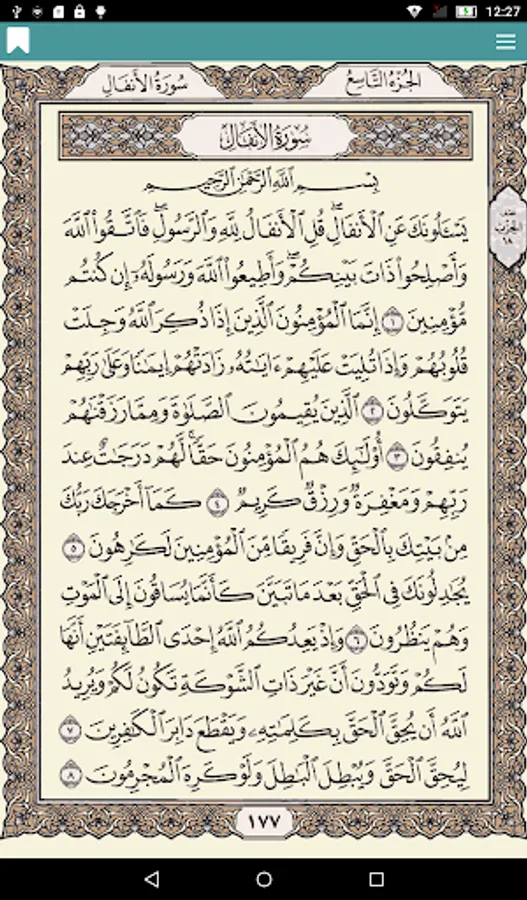 12:27
سُورَةُ الأَنفَالِ
الجُزءُ التَّاسِعُ
سُورَةُ الأَنفَال
بِسْمِ اللَّهِ الرَّحْمَٰنِ الرَّحِيمِ
يَسْـَٔلُونَكَ عَنِ ٱلْأَنفَالِۖ قُلِ ٱلْأَنفَالُ لِلَّهِ وَٱلرَّسُولِۖ فَٱتَّقُوا۟ ٱللَّهَ
نصف الحزب ١٨
وَأَصْلِحُوا۟ ذَاتَ بَيْنِكُمْۖ وَأَطِيعُوا۟ ٱللَّهَ وَرَسُولَهُۥٓ إِن كُنتُم
مُّؤْمِنِينَ ١ إِنَّمَا ٱلْمُؤْمِنُونَ ٱلَّذِينَ إِذَا ذُكِرَ ٱللَّهُ وَجِلَتْ
قُلُوبُهُمْ وَإِذَا تُلِيَتْ عَلَيْهِمْ ءَايَٰتُهُۥ زَادَتْهُمْ إِيمَٰنًا وَعَلَىٰ رَبِّهِمْ
يَتَوَكَّلُونَ ٢ ٱلَّذِينَ يُقِيمُونَ ٱلصَّلَوٰةَ وَمِمَّا رَزَقْنَٰهُمْ
يُنفِقُونَ ٣ أُو۟لَٰٓئِكَ هُمُ ٱلْمُؤْمِنُونَ حَقًّاۚ لَّهُمْ دَرَجَٰتٌ عِندَ
رَبِّهِمْ وَمَغْفِرَةٌ وَرِزْقٌ كَرِيمٌ ٤ كَمَآ أَخْرَجَكَ رَبُّكَ
مِنۢ بَيْتِكَ بِٱلْحَقِّ وَإِنَّ فَرِيقًا مِّنَ ٱلْمُؤْمِنِينَ لَكَٰرِهُونَ ٥
يُجَٰدِلُونَكَ فِى ٱلْحَقِّ بَعْدَ مَا تَبَيَّنَ كَأَنَّمَا يُسَاقُونَ إِلَى ٱلْمَوْتِ
وَهُمْ يَنظُرُونَ ٦ وَإِذْ يَعِدُكُمُ ٱللَّهُ إِحْدَى ٱلطَّآئِفَتَيْنِ أَنَّهَا
لَكُمْ وَتَوَدُّونَ أَنَّ غَيْرَ ذَاتِ ٱلشَّوْكَةِ تَكُونُ لَكُمْ وَيُرِيدُ
ٱللَّهُ أَن يُحِقَّ ٱلْحَقَّ بِكَلِمَٰتِهِۦ وَيَقْطَعَ دَابِرَ ٱلْكَٰفِرِينَ ٧
لِيُحِقَّ ٱلْحَقَّ وَيُبْطِلَ ٱلْبَٰطِلَ وَلَوْ كَرِهَ ٱلْمُجْرِمُونَ ٨
١٧٧